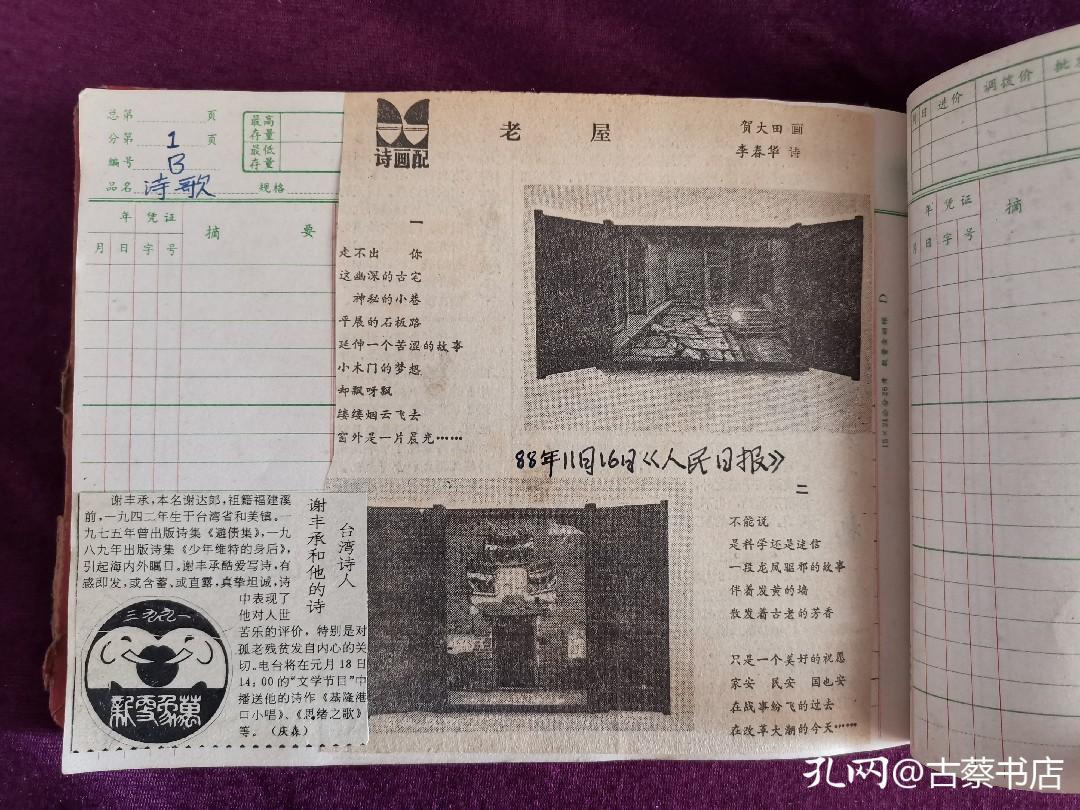 总第 页
分第 1 页
编号 B
品名 诗歌 规格
最高存量
最低存量
年 凭证
摘 要
月 日 字 号
诗画配
老 屋
贺大田 画
李春华 诗
一
走不出 你
这幽深的古宅
神秘的小巷
平展的石板路
延伸一个苦涩的故事
小木门的梦想
却飘呀飘
缕缕烟云飞去
窗外是一片晨光……
88年11月16日《人民日报》
二
不能说
是科学还是迷信
一段龙凤驱邪的故事
伴着发黄的墙
散发着古老的芳香
只是一个美好的祝愿
家安 民安 国也安
在战事纷飞的过去
在改革大潮的今天……
台湾诗人
谢丰承和他的诗
谢丰承,本名谢达郎,祖籍福建溪
前,一九四二年生于台湾省和美镇。一
九七五年曾出版诗集《避债集》,一九
八九年出版诗集《少年维特的身后》,
引起海内外瞩目。谢丰承酷爱写诗,有
感即发,或含蓄,或直露,真挚坦诚,诗
中表现了
他对人世
苦乐的评价,特别是对
孤老残贫发自内心的关
切。电台将在元月18日
14:00的“文学节目”中
播送他的诗作《基隆港
口小唱》、《思绪之歌》
等。(庆森)
月 日 进价 调拨价
年 凭证
摘
月 日 字 号
孔网@古蔡书店